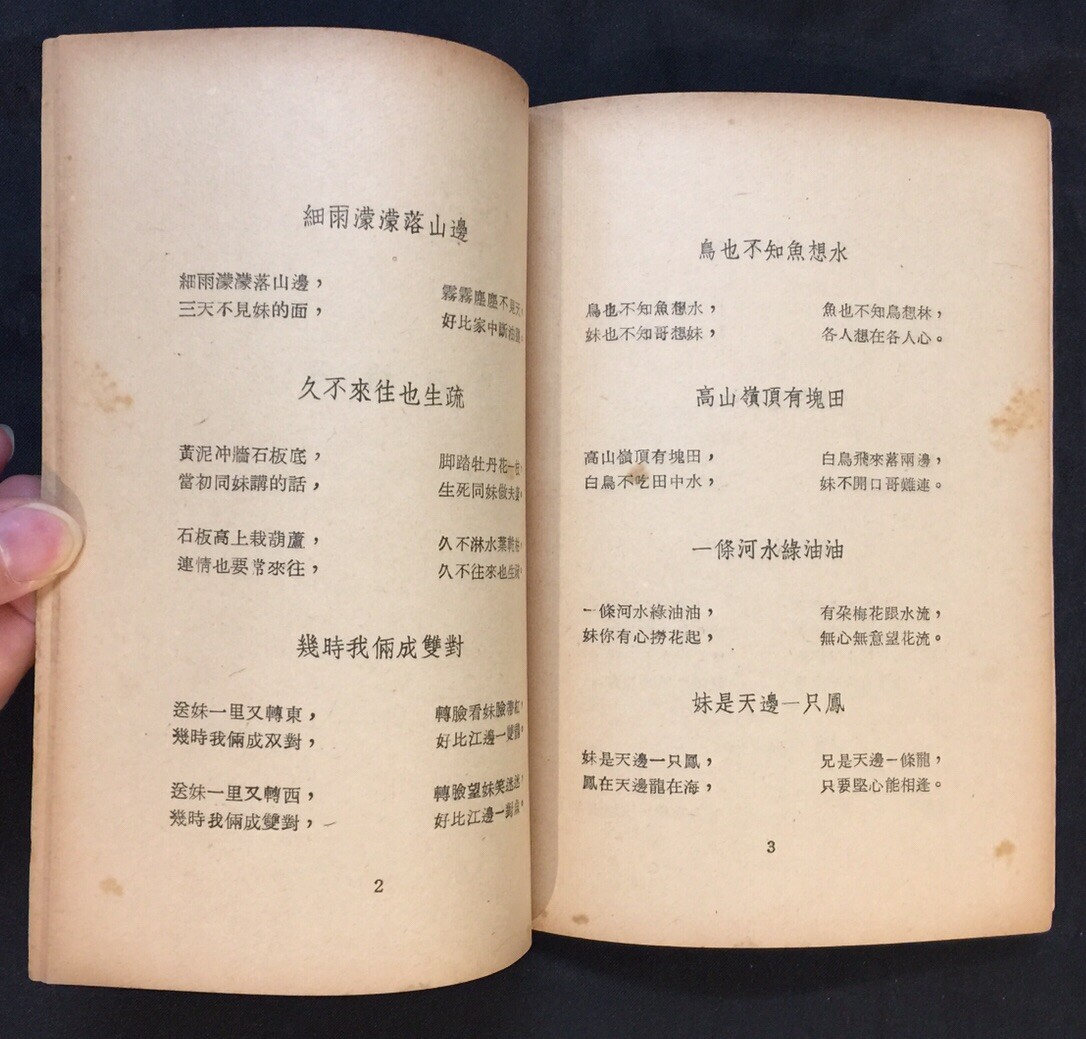 細雨濛濛落山邊
細雨濛濛落山邊， 霧霧塵塵不見天，
三天不見妹的面， 好比家中斷油鹽。
久不來往也生疏
黃泥冲牆石板底， 脚踏牡丹花一枝，
當初同妹講的話， 生死同妹做夫妻。
石板高上栽葫蘆， 久不淋水葉乾枯，
連情也要常來往， 久不往來也生疏。
幾時我倆成雙對
送妹一里又轉東， 轉臉看妹臉帶紅，
幾時我倆成双對， 好比江邊一雙
送妹一里又轉西， 轉臉望妹笑迷迷，
幾時我倆成雙對， 好比江邊一對魚。
2
鳥也不知魚想水
鳥也不知魚想水， 魚也不知鳥想林，
妹也不知哥想妹， 各人想在各人心。
高山嶺頂有塊田
高山嶺頂有塊田， 白鳥飛來落兩邊，
白鳥不吃田中水， 妹不開口哥難連。
一條河水綠油油
一條河水綠油油， 有朶梅花跟水流，
妹你有心撈花起， 無心無意望花流。
妹是天邊一只鳳
妹是天邊一只鳳， 兄是天邊一條龍，
鳳在天邊龍在海， 只要堅心能相逢。
3